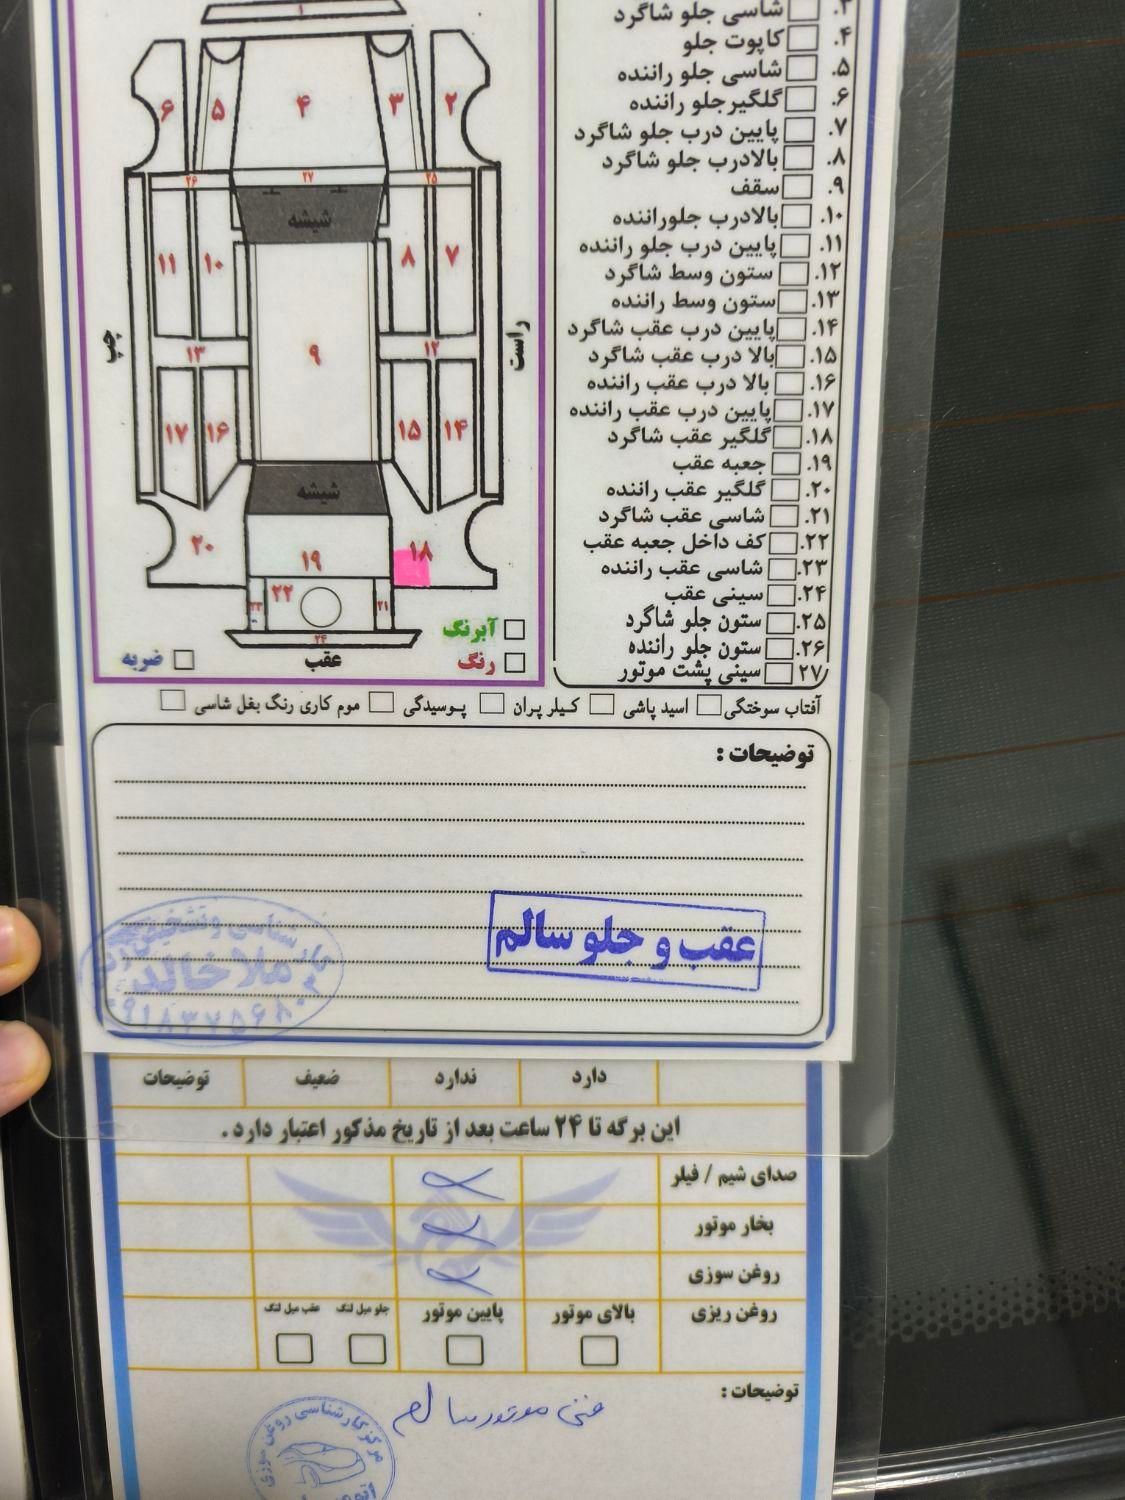 ۱
۶
۵
۴
۳
۲
۲۶
۲۷
۲۵
شیشه
۱۱
۱۰
۸
۷
چپ
راست
۹
۱۳
۱۲
۱۷
۱۶
۱۵
۱۴
شیشه
۲۰
۱۹
۱۸
۲۳
۲۲
۲۱
۲۴
عقب
آبرنگ
رنگ
ضربه
۳. شاسی جلو شاگرد
۴. کاپوت جلو
۵. شاسی جلو راننده
۶. گلگیرجلو راننده
۷. پایین درب جلو شاگرد
۸. بالادرب جلو شاگرد
۹. سقف
۱۰. بالادرب جلوراننده
۱۱. پایین درب جلو راننده
۱۲. ستون وسط شاگرد
۱۳. ستون وسط راننده
۱۴. پایین درب عقب شاگرد
۱۵. بالا درب عقب شاگرد
۱۶. بالا درب عقب راننده
۱۷. پایین درب عقب راننده
۱۸. گلگیر عقب شاگرد
۱۹. جعبه عقب
۲۰. گلگیر عقب راننده
۲۱. شاسی عقب شاگرد
۲۲. کف داخل جعبه عقب
۲۳. شاسی عقب راننده
۲۴. سینی عقب
۲۵. ستون جلو شاگرد
۲۶. ستون جلو راننده
۲۷. سینی پشت موتور
آفتاب سوختگی اسید پاشی کیلر پران پوسیدگی موم کاری رنگ بغل شاسی
توضیحات :
عقب و جلو سالم
کارشناسی و تشخیص رنگ
ملا خالد
دارد ندارد ضعیف توضیحات
این برگه تا ۲۴ ساعت بعد از تاریخ مذکور اعتبار دارد .
صدای شیم / فیلر
بخار موتور
روغن سوزی
روغن ریزی بالای موتور پایین موتور جلو میل لنگ عقب میل لنگ
توضیحات :
فنی موتور سالم
مرکز کارشناسی روغن سوزی